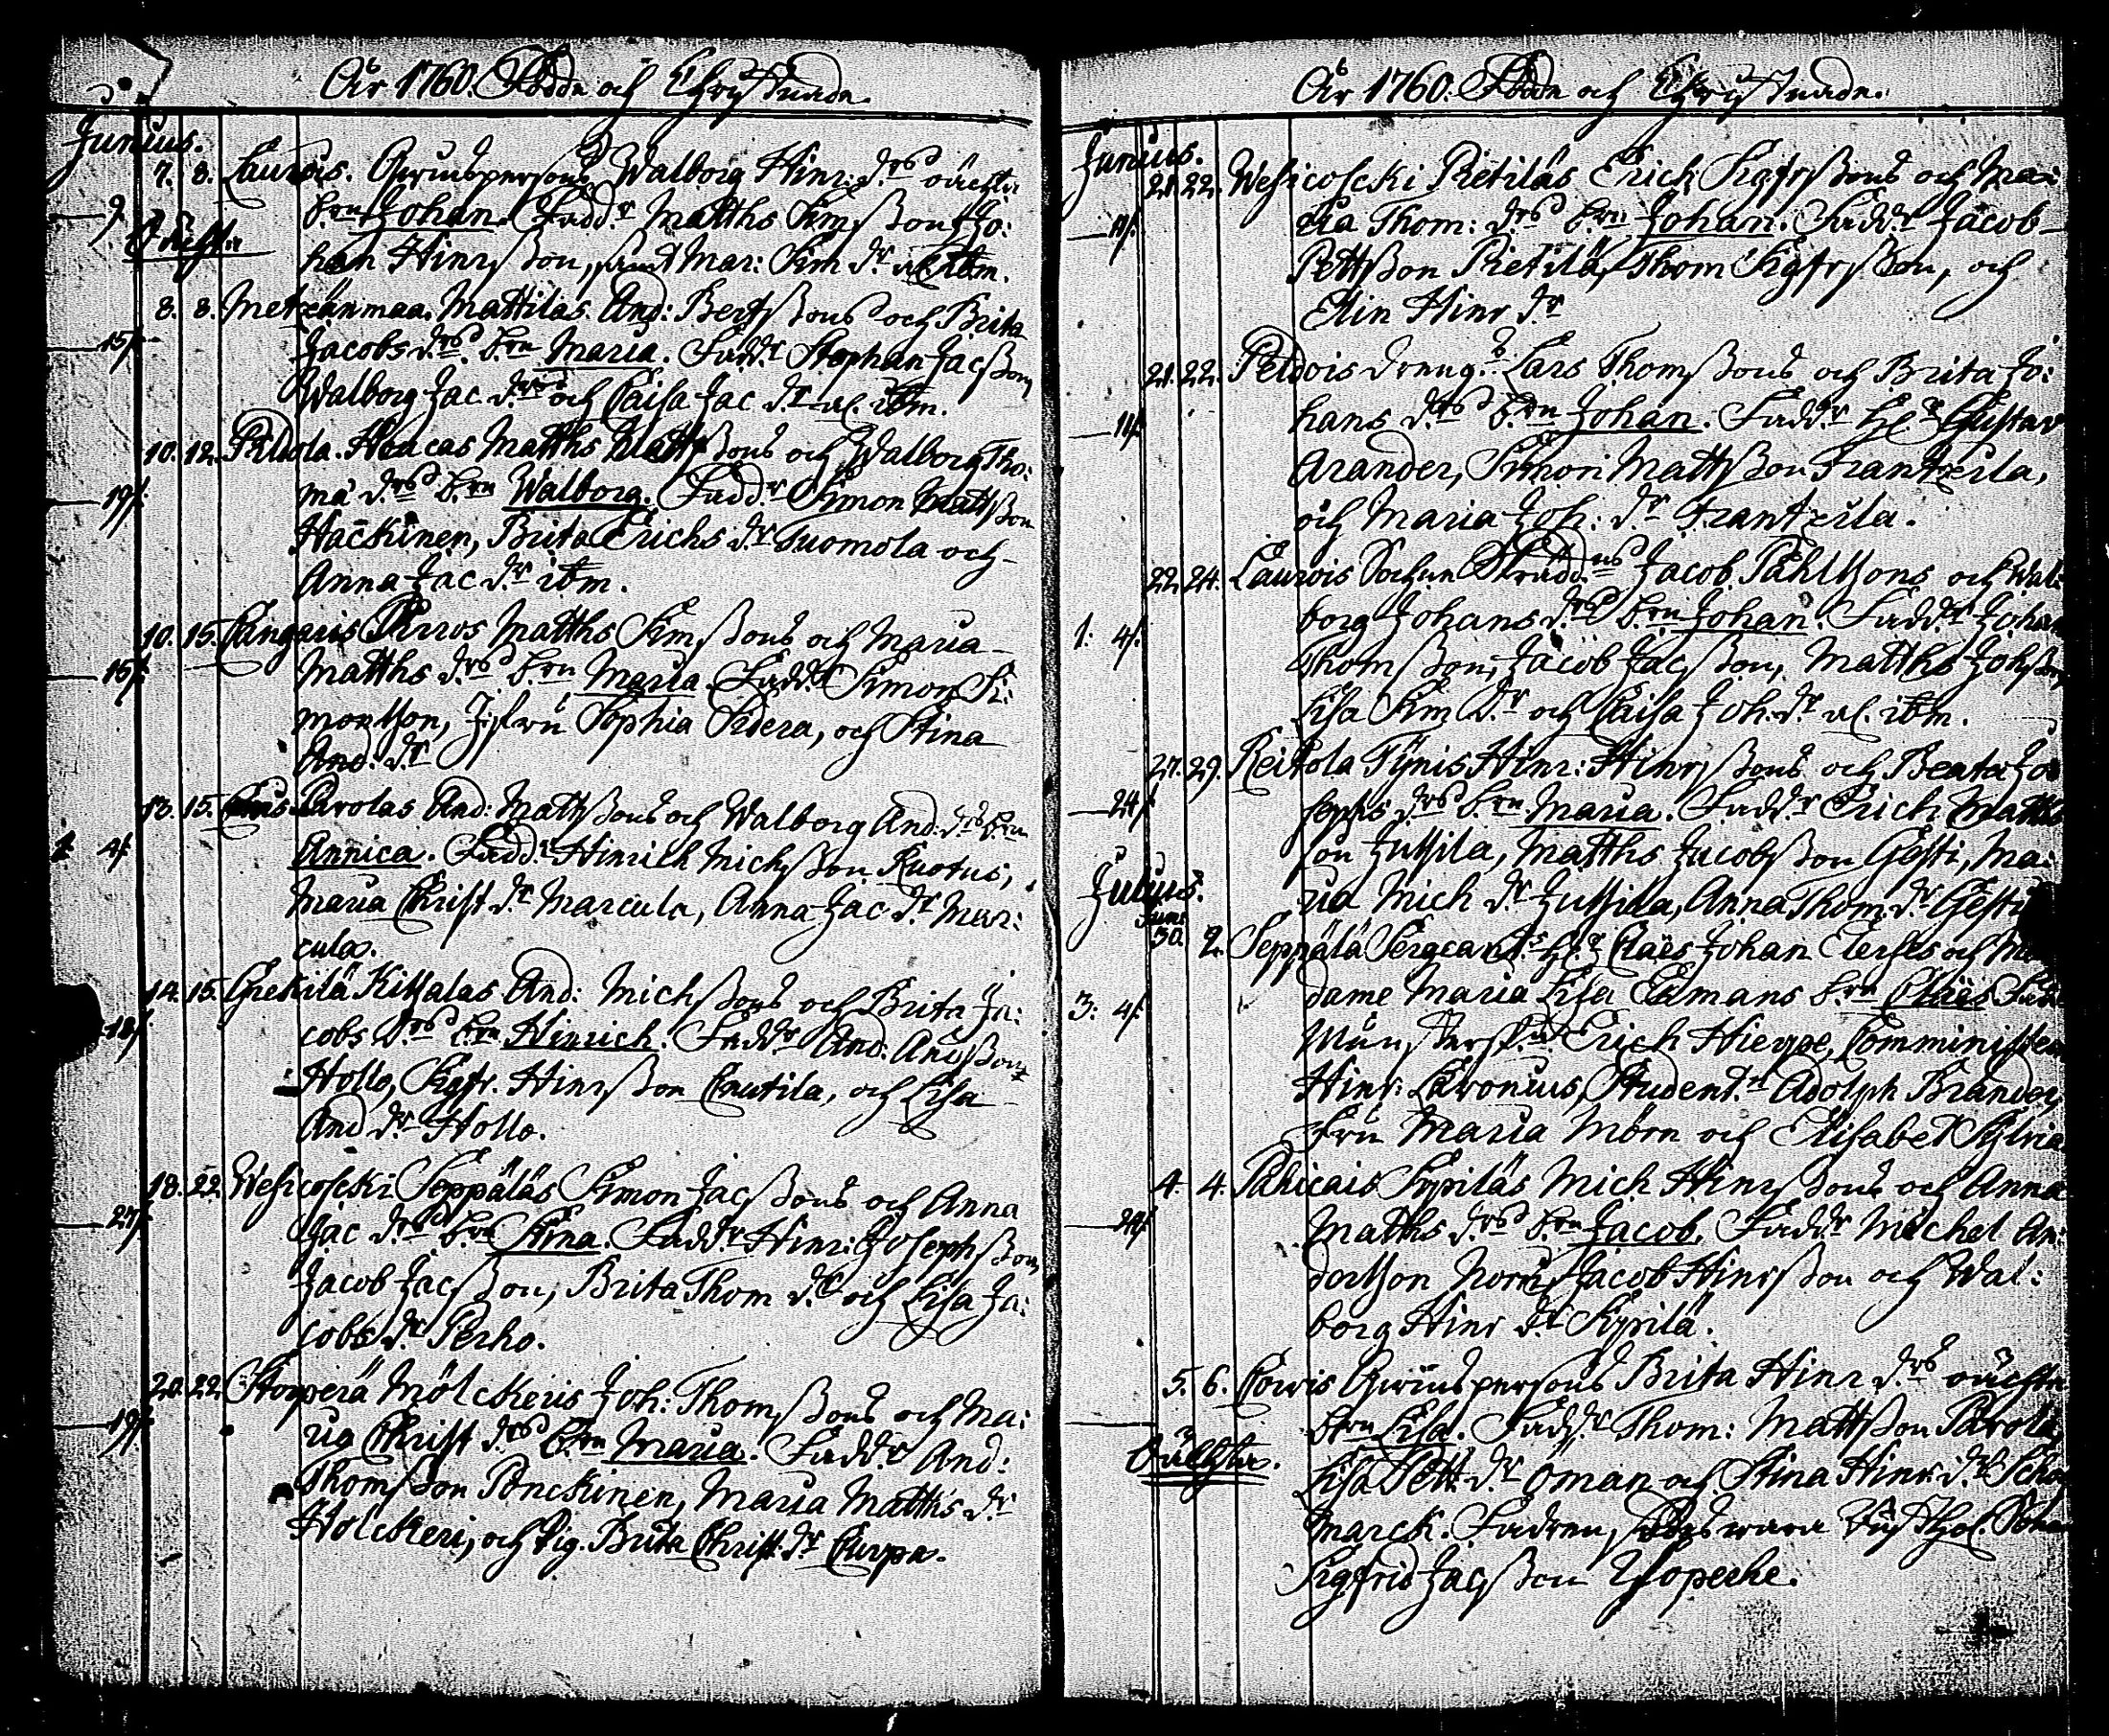 År 1760. Födde och Christnade.
Junius.
7. 8. Laurois. Qwinspersons Walborg Hinr: drs oächta
9. brn Johan. Fadd.r Matths Simsson, Jo:
Oächta
han Hinrsson, samt Mar: Sim dr al. ibm.
8. 8. Metzänmaa. Mattilas. And: Bertssons och Brita
15/. Jacobs drs brn Maria. Fadd.r Stephan Jacsson,
Walborg Jac. dr och Caisa Jac dr al. ibm.
10. 12. Peldola. Hoacas Matths Mattssons och Walborg Tho:
19/. mæ drs brn Walborg. Fadd.r Simon Mattsson
Hackinen, Brita Erichs dr Tuomola och
Anna Jac dr ibm.
10. 15. Cangaris Pirros Matths Simssons och Maria
16/. Matths drs brn Maria. Fadd.r Simon Si:
monsson, Jfru Sophia Polera, och Stina
And: dr
13. 15. Parolas And: Mattssons och Walborg And: drs brn
1 4/. Annica. Fadd.r Hinrich Michsson Ruotus,
Maria Christ dr Marcula, Anna Jac dr Mar:
cula.
14. 15. Grekilä Kitzalas And: Michssons och Brita Ja:
18/. cobs drs brn Hinrich. Fadd.r And: Andsson
Hollo, Sigfr. Hinrsson Cnutila, och Lisa
And dr Hollo.
18. 22. Wesicoscki Seppäläs Simon Jacssons och Anna
27/. Jac drs brn Stina. Fadd.r Hinr: Josephsson,
Jacob Jacsson, Brita Thom dr och Lisa Ja:
cobs dr Perho.
20. 22. Storperä Mölckeris Joh: Thomssons och Ma:
19/. ria Christ drs brn Maria. Fadd.r And:
Thomsson Ponckinen, Maria Matths dr
Holckeri, och Pig. Brita Christ. dr Curpa.
År 1760. Födde och Christnade.
Junius.
21. 22. Wesicoscki Pietiläs Erich Sigfrssons och Ma:
11/. ria Thom: drs brn Johan. Fadd.r Jacob
Pettsson Pietilä, Thom Sigfrsson, och
Elin Hinr dr
21. 22. Peldois dreng.s Lars Thomssons och Brita Jo:
11/. hans drs brn Johan. Fadd.r Hl.r Gustav
Arander, Simon Mattsson Frantzila,
och Maria Joh: dr Frantzila.
22. 24. Laurois Sochn Skrädd.ns Jacob Påhlssons och Wal:
1: 4/. borg Johans drs brn Johan. Fadd.r Johan
Thomsson, Jacob Jacsson, Matths Johsson,
Lisa Sim dr och Caisa Joh. dr al. ibm.
27. 29. Reikola Tynis Hinr: Hinrssons och Beata Jo
24/. sephs drs brn Maria. Fadd.r Erich Matts
son Jussila, Matths Jacobsson Gesti, Ma:
Julius.
ria Mich dr Jussila, Anna Thom dr Gesti
Juni 30. 2. Seppälä Sergeant.s Hl.r Claes Johan Clerfes och Ma
3: 4/. dame Maria Lisa Ekmans brn Claës Fadd
Mönsterskr.n Erich Hieppe, Comministern
Hinr: Laronius, Student.n Adolph Brander,
Fru Maria Mörn och Elisabet Sylvia
4. 4. Pahicais Sypiläs Mich Hinrssons och Anna
24/. Matths drs brn Jacob. Fadd.r Michel An:
dersson Norus, Jacob Hinrsson och Wal:
borg Hinr dr Sypilä.
5. 6. Cowis Qwinspersons Brita Hinr drs oächta
brn Lisa. Fadd.r Thom: Mattsson Parola,
Oächta.
Lisa Pett dr Öman och Stina Hinr. dr Scho
marck. Fadren, sades wara
Sigfrid Jacsson Yloperhe.